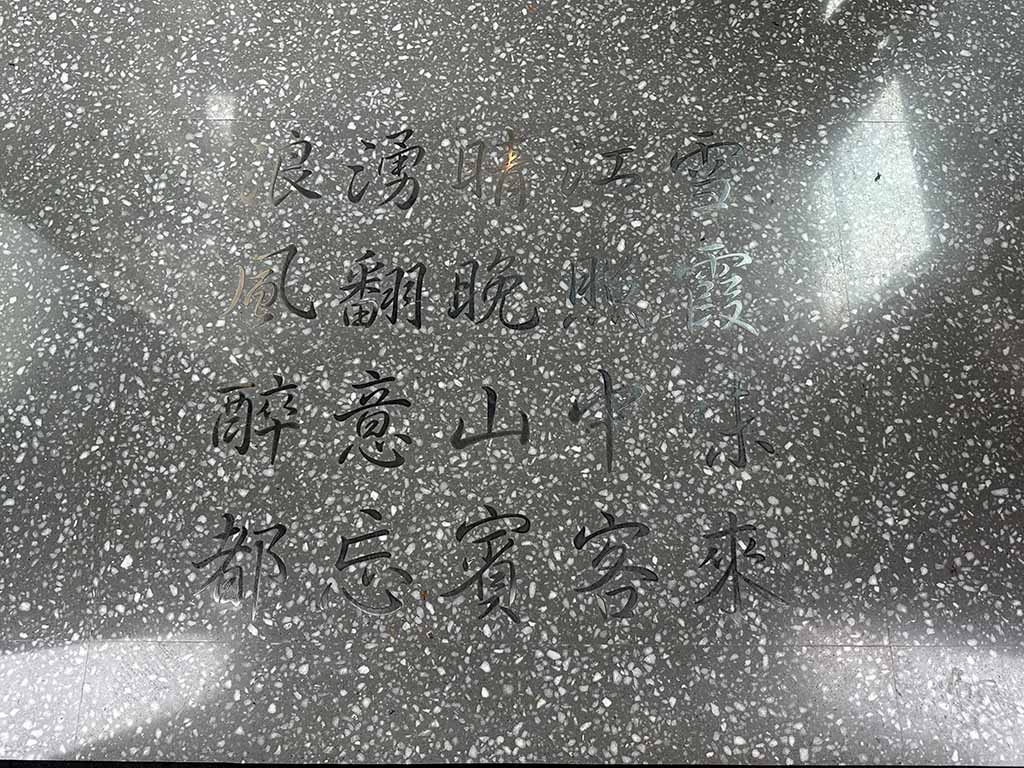 浪湧晴江雪
風翻晚照霞
醉意山中味
都忘賓客來